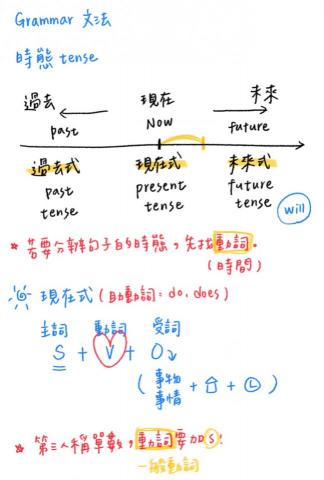 Grammar 文法
時態 tense
過去 現在 未來
past Now future
過去式 現在式 未來式
past present future
tense tense tense will
* 若要分辨句子的時態，先找動詞。
(時間)
現在式 (助動詞: do, does)
主詞 動詞 受詞
S + V + O
(事物 + 介 + L)
事情
* 第三人稱單數，動詞要加s!
一般動詞